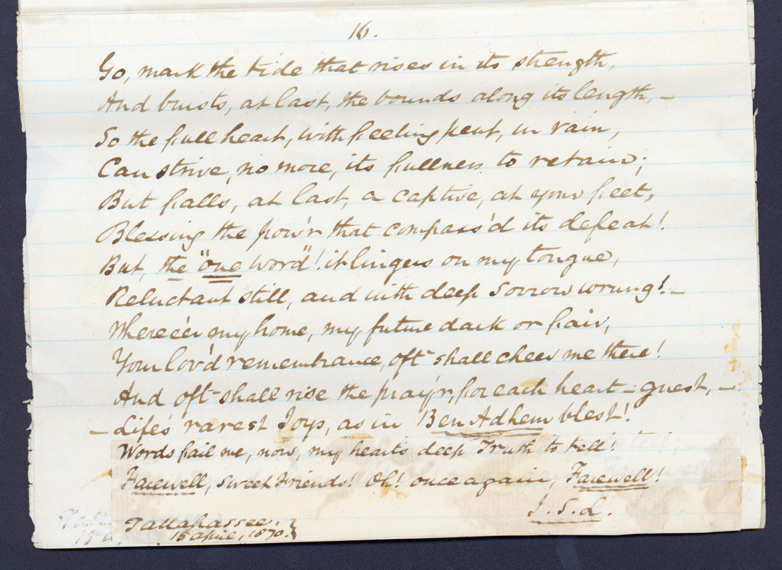 16.
Go, mark the tide that rises in its strength,
And bursts, at last, the bounds along its length, –
So the full heart, with feeling pent, in vain,
Can strive, no more, its fullness to retain;
But falls, at last, a captive, at your feet,
Blessing the pow'r that compass'd its defeat!
But, the "one word"! it lingers on my tongue,
Reluctant still, and with deep sorrow wrung! –
Where'er my home, my future dark or fair,
Your lov'd remembrance, oft shall cheer me there!
And oft shall rise the pray'r, for each heart-guest, –
– Life's rarest Joys, as in Ben Adhem blest!
Words fail me, now, my heart's deep Truth to tell!
Farewell, sweet Friends! Oh! once again, Farewell!
J. S. L.
Tallahassee,
15 April, 1870.